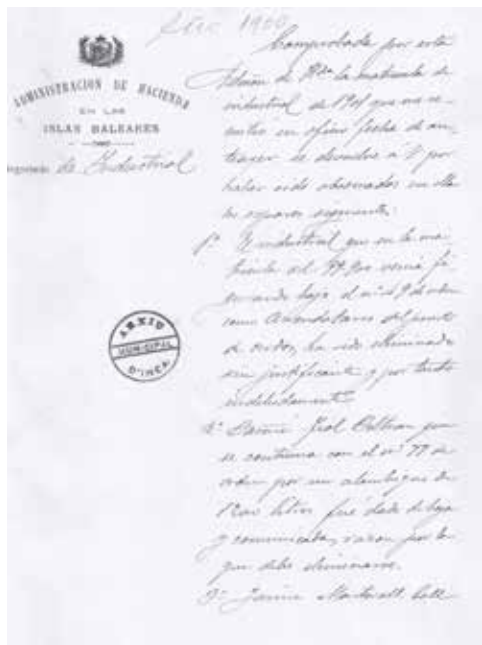 Año 1900
ADMINISTRACION DE HACIENDA
EN LAS
ISLAS BALEARES
Negociado de Industrial
Comprobada por esta
Admón de Hda la matricula de
industrial de 1901 que me re-
mite en oficio fecha de an-
teayer se devuelve a V por
haber sido observados en ella
los reparos siguientes:
1º El industrial que en la ma-
tricula del 99-900 venia fi-
gurando bajo el nº 9 de orden
como Arrendatario del
de cerdos, ha sido eliminado
sin justificante y por tanto
indebidamente.
2º Beltran que
se continua con el nº 77 de
orden por un alambique de
litros fué dado de baja
y comunicada, razon por lo
que debe eliminarse.
3º Jaime Martorell Coll
ARXIU
MUNICIPAL
D'INCA